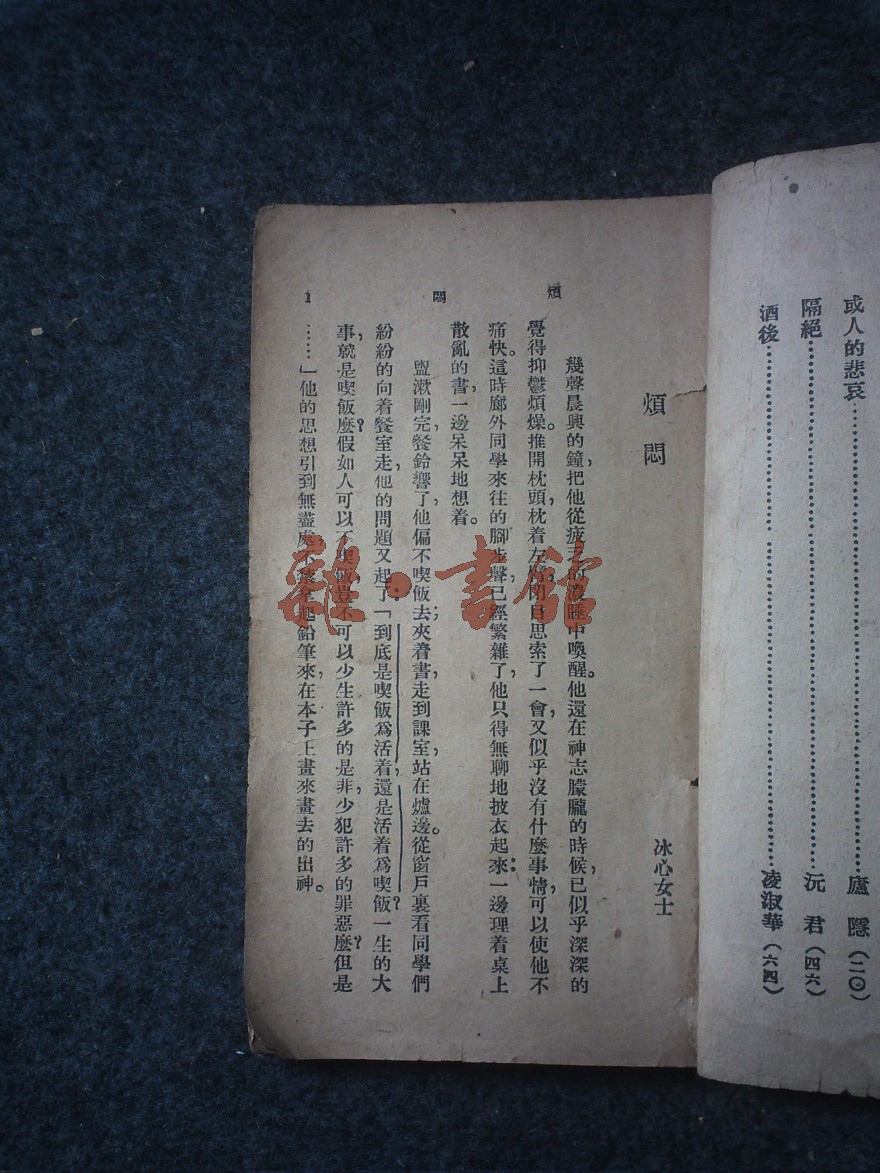 或人的悲哀……廬隱（二〇）
隔絕……沅君（四六）
酒後……凌淑華（六四）
煩悶
冰心女士
幾聲晨興的鐘，把他從疲乏的濃睡中喚醒。他還在神志朦朧的時候，已似乎深深的
覺得抑鬱煩燥。推開枕頭，枕着左臂，閉目思索了一會，又似乎沒有什麼事情，可以使他不
痛快。這時廊外同學來往的腳步聲，已經繁雜了，他只得無聊地披衣起來：一邊理着桌上
散亂的書，一邊呆呆地想着。
盥漱剛完，餐鈴響了，他偏不喫飯去；夾着書，走到課室，站在爐邊。從窗戶裏看同學們
紛紛的向着餐室走，他的問題又起了：「到底是喫飯爲活着，還是活着爲喫飯？一生的大
事，就是喫飯麼？假如人可以不喫飯，豈不可以少生許多的是非，少犯許多的罪惡麼？但是
……」他的思想引到無盡處，不禁拿起鉛筆來，在本子上畫來畫去的出神。
煩
悶
1
雜·書館